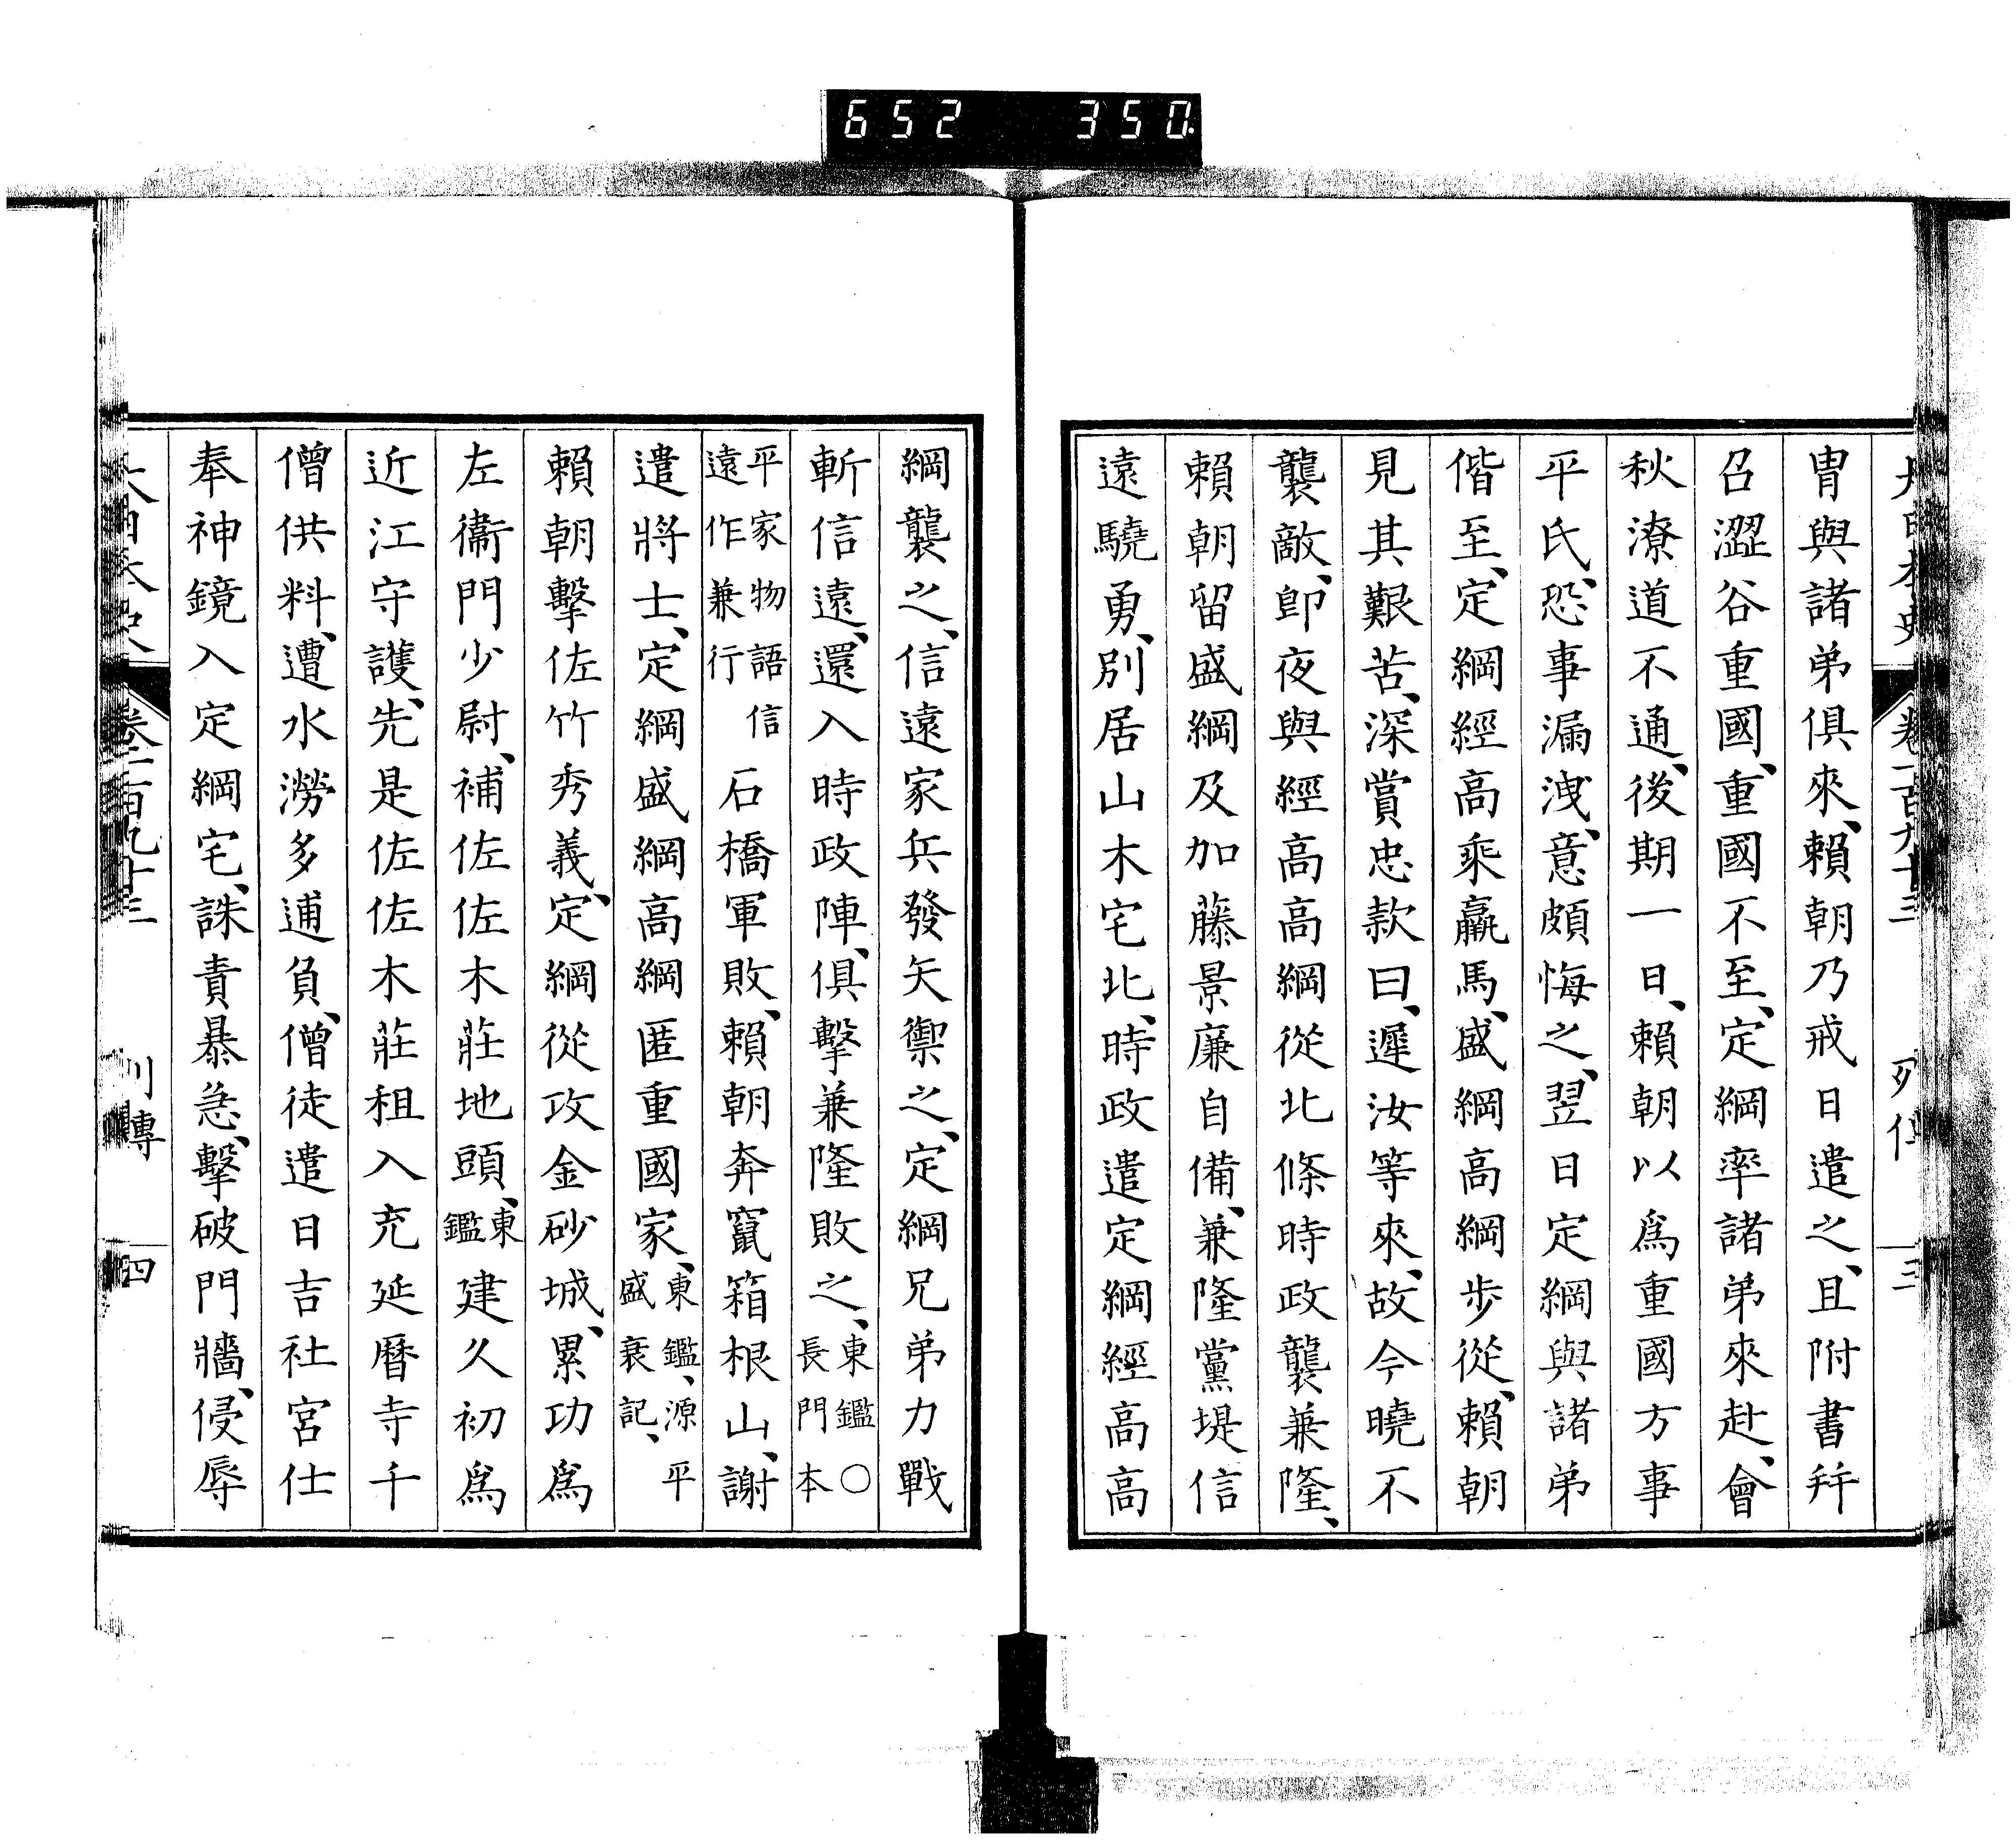 652 350
大日本史 卷一百九十三 列傳 三
冑與諸弟俱來、賴朝乃戒日遣之、且附書幷
召澀谷重國、重國不至、定綱率諸弟來赴、會
秋潦道不通、後期一日、賴朝以爲重國方事
平氏、恐事漏洩、意頗悔之、翌日定綱與諸弟
偕至、定綱經高乘羸馬、盛綱高綱步從、賴朝
見其艱苦、深賞忠款曰、遲汝等來、故今曉不
襲敵、卽夜與經高高綱從北條時政襲兼隆、
賴朝留盛綱及加藤景廉自備、兼隆黨堤信
遠驍勇、別居山木宅北、時政遣定綱經高高
綱襲之、信遠家兵發矢禦之、定綱兄弟力戰
斬信遠、還入時政陣、俱擊兼隆敗之、東鑑〇長門本
平家物語信遠作兼行石橋軍敗、賴朝奔竄箱根山、謝
遣將士、定綱盛綱高綱匿重國家、東鑑、源平盛衰記、
賴朝擊佐竹秀義、定綱從攻金砂城、累功爲
左衞門少尉、補佐佐木莊地頭、東鑑建久初爲
近江守護、先是佐佐木莊租入充延曆寺千
僧供料、遭水澇多逋負、僧徒遣日吉社宮仕
奉神鏡入定綱宅、誅責暴急、擊破門牆、侵辱
大日本史 卷一百九十三 列傳 四